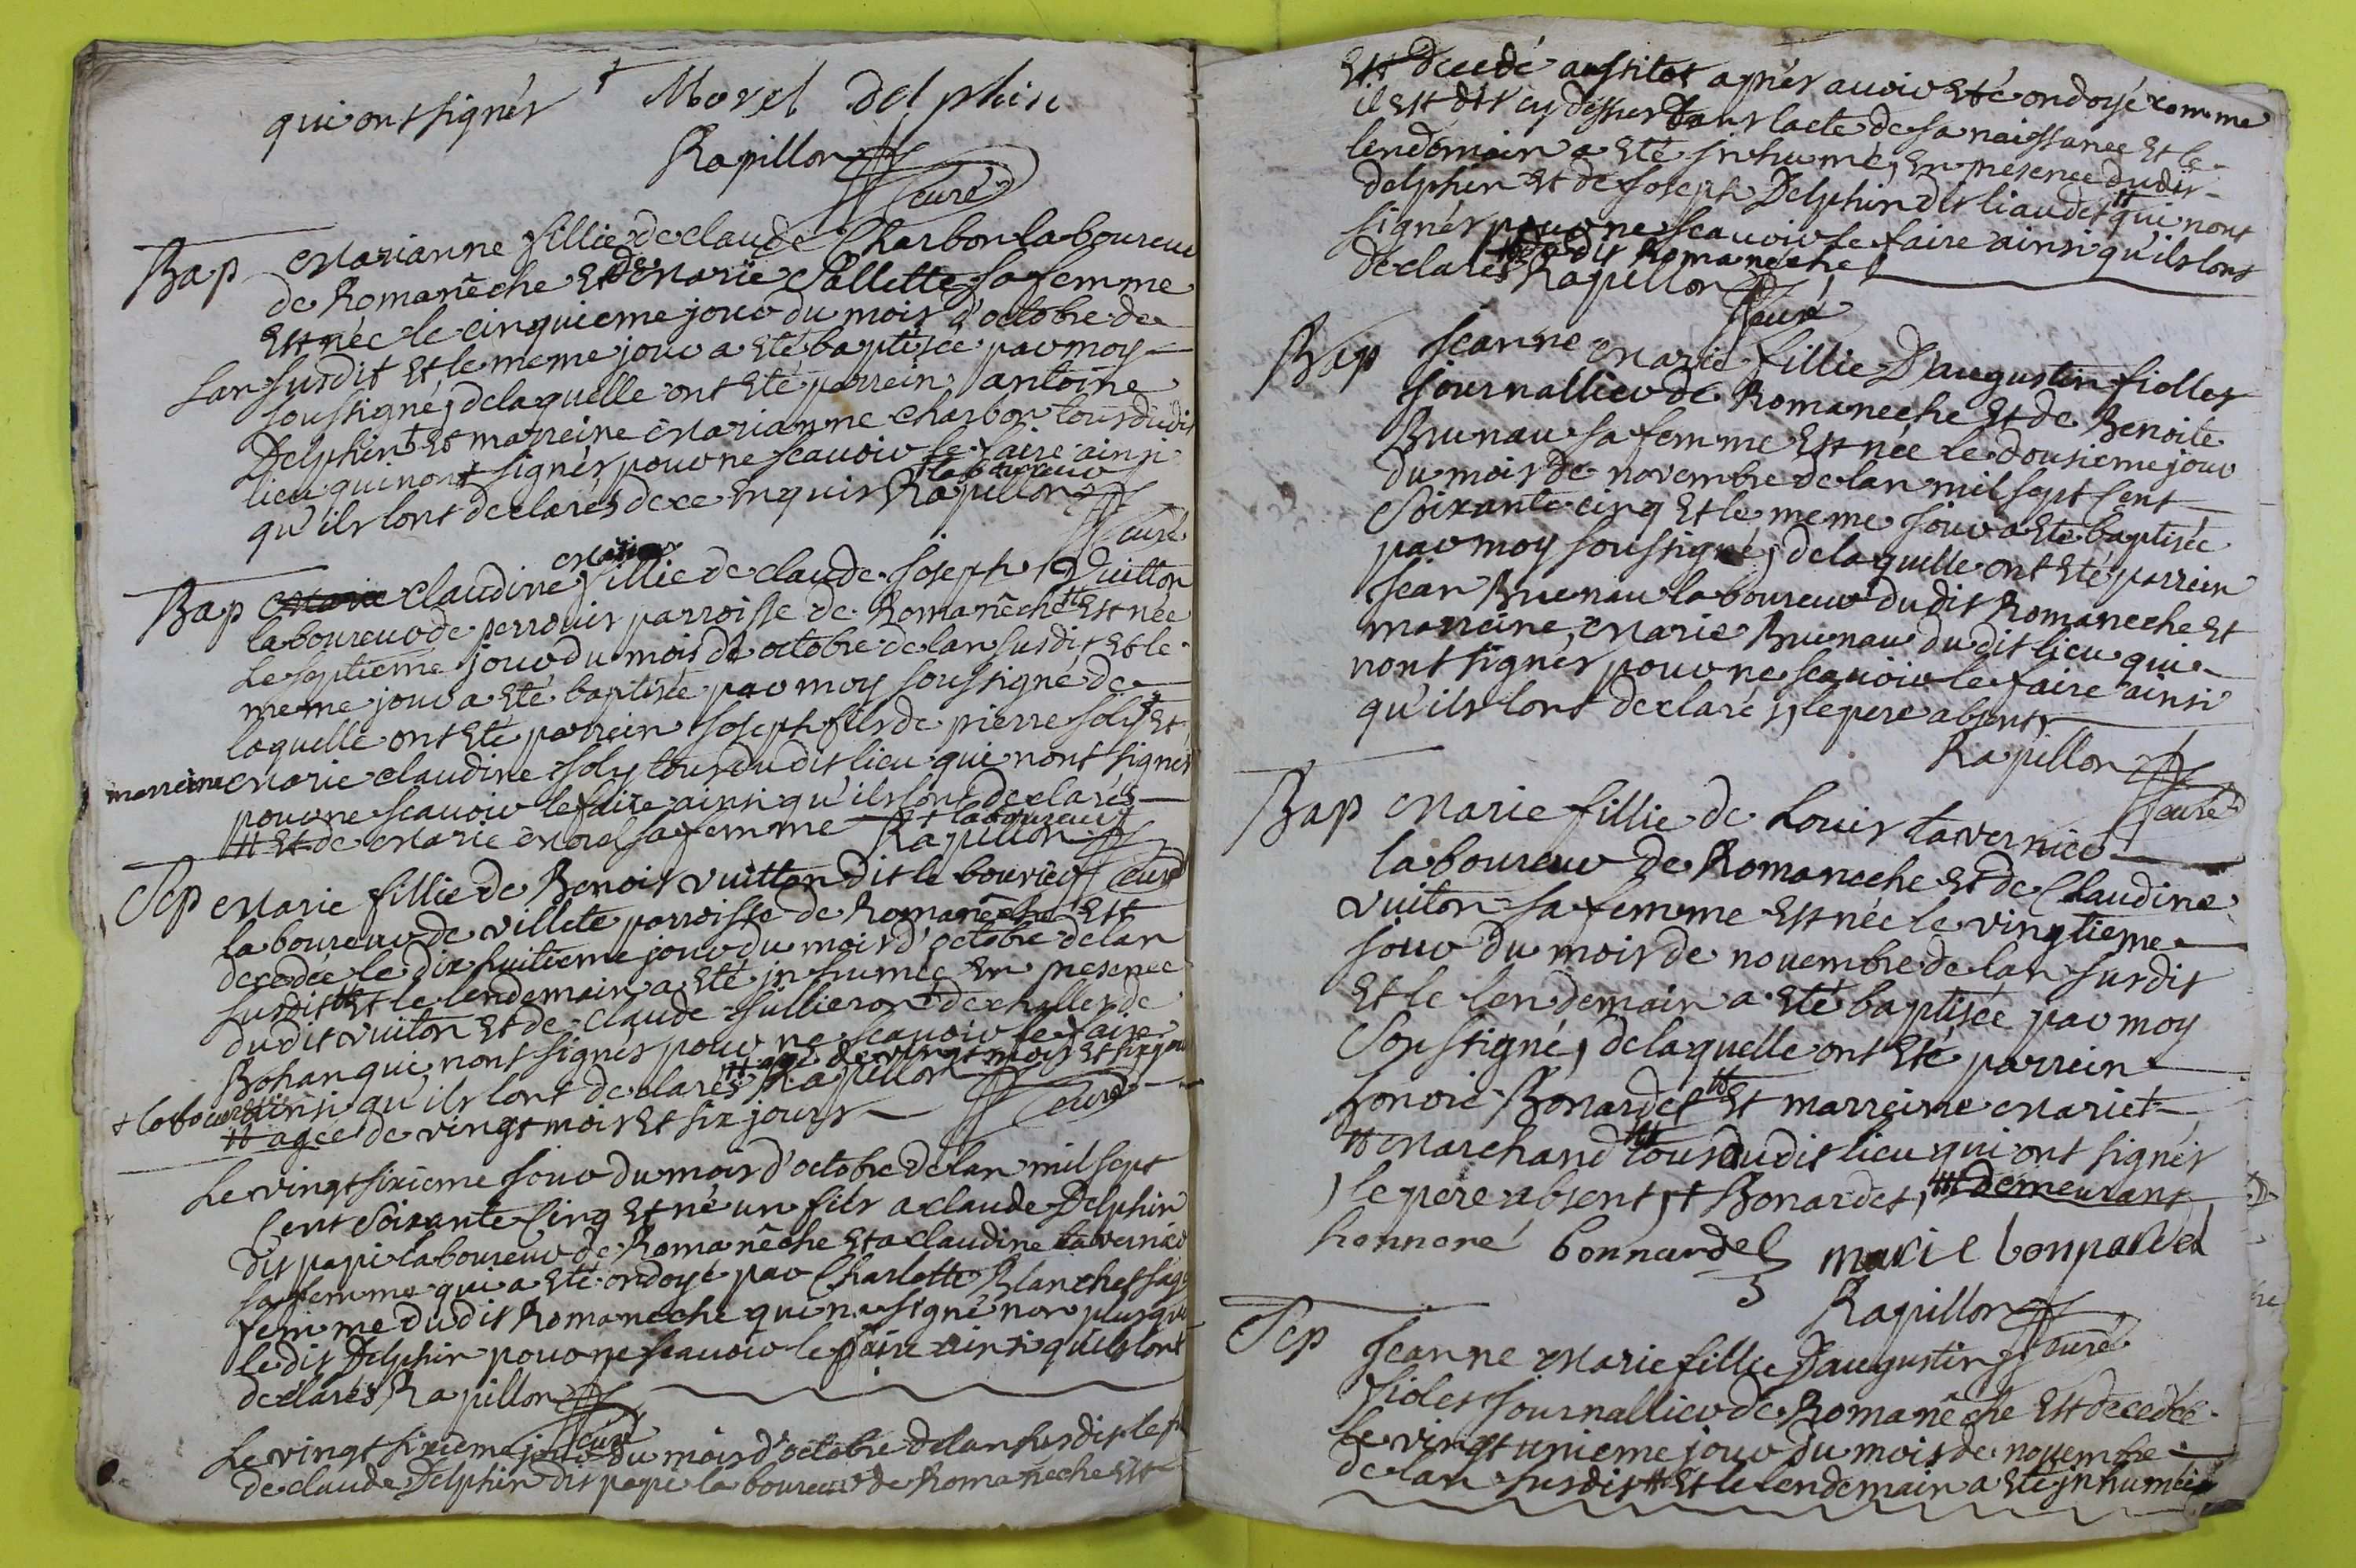 qui ont signés † Morel delphin
Rapillon
curé
Bap Marianne fillie de claude Charbon laboureur
de Romanêche Et de Marie Pallette sa femme
Est née le cinquieme jour du mois d'octobre de
lan susdit Et le meme jour a Eté baptisée par moy
soussigné, de laquelle ont Eté parrein, antoine
Delphin † Et marreine Marianne Charbon tous dudit
lieu qui nont signés pour ne scauoir le faire ainsi
† laboureur
qu'ils lont declarés de ce Enquis Rapillon
curé
Marie
Bap Marie claudine fillie de claude Joseph Vuitton
laboureur de perrouis parroisse de Romanêche †† Est née
Le septieme jour du mois de octobre de lan susdit Et le
meme jour a Eté baptisée par moy soussigné de
laquelle ont Eté parrein Joseph fils de pierre Joly † Et
marreine Marie claudine Joly tous du dit lieu qui nont signés
pour ne scauoir le faire ainsi qu'ils lont declarés
†† Et de Marie Morel sa femme † laboureur
Rapillon
curé
Sep Marie fillie de Benoit Vuitton dit le bouvier
laboureur de villete parroisse de Romanêche Est
decedée le dix huitieme jour du mois d'octobre de lan
susdit †† Et le lendemain a Eté inhumée En presence
dudit vuiton Et de claude Jullieron † de challes de
Bohan qui nont signés pour ne scauoir le faire
†† agé de vingt mois et six jours
† laboureur ainsi qu'ils lont declarés Rapillon
curé
†† agée de vingt mois Et six jours
Le vingt sixieme Jour du mois d'octobre de lan mil sept
Cent Soixante Cinq Est né un fils a claude Delphin
dit papi laboureur de Romanêche Et a claudine tavernier
sa femme qui a Eté ondoyé par Charlotte Blanchet sage
femme du dit Romaneche qui na signé non plus que
le dit Delphin pour ne scauoir le faire ainsi quils lont
declarés Rapillon
curé
Le vingt sixieme jour du mois d'octobre de lan susdit le fils
de claude Delphin dit papi laboureur de Romaneche Est
Est decedé aussitot apres auoir Eté ondoyé comme
il est dit cy dessus dans lacte de sa naissance Et le
lendemain a Eté inhumé, En presence dudit
delphin Et de Joseph Delphin dit liaudet †† qui nont
signés pour ne scauoir le faire ainsi qu'ils lont
†† du dit Romaneche
declarés Rapillon
curé
Bap Jeanne Marie fillie D'augustin fiolles
Journallier de Romaneche Et de Benoite
Brunau sa femme Est née le dousieme jour
du mois de novembre de lan mil sept Cent
Soixante cinq Et le meme Jour a Eté baptisée
par moy soussigné, de laquelle ont Eté parrein
Jean Brunau laboureur du dit Romaneche Et
marreine, Marie Brunau du dit lieu qui
nont signés pour ne scauoir le faire ainsi
qu'ils lont declaré, le pere absent,
Rapillon
curé
Bap Marie fillie de Louis tavernier
laboureur de Romaneche Et de Claudine
vuiton sa femme Est née le vingtieme
Jour du mois de nouembre de lan susdit
Et le lendemain a Eté baptisée par moy
Soussigné, de laquelle ont Eté parrein
honoré Bonardet †† Et marreine Marie †
†† Marchand ††† tous dudit lieu qui ont signés
, le pere absent, † Bonardet, ††† demeurant
honnoré bonnardel marie bonnardel
Rapillon
curé
Sep Jeanne Marie fillie D'augustin
fioles Journallier de Romanêche Est decedée
le vingt unieme jour du mois de nouembre
de lan susdit †† Et le lendemain a Eté inhumée